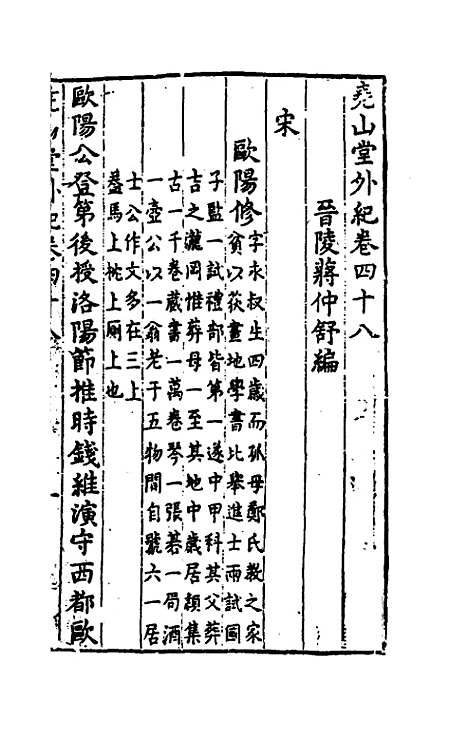 堯山堂外紀卷四十八
晉陵蔣仲舒編
宋
歐陽修
字永叔生四歲而孤母鄭氏教之家
貧以荻畫地學書比舉進士兩試國
子監一試禮部皆第一遂中甲科其父葬
吉之瀧岡惟葬母一至其地中歲居潁集
古一千卷藏書一萬卷琴一張棊一局酒
一壺公以一翁老于五物間自號六一居
士公作文多在三上
葢馬上枕上厠上也
歐陽公登第後授洛陽節推時錢維演守西都歐